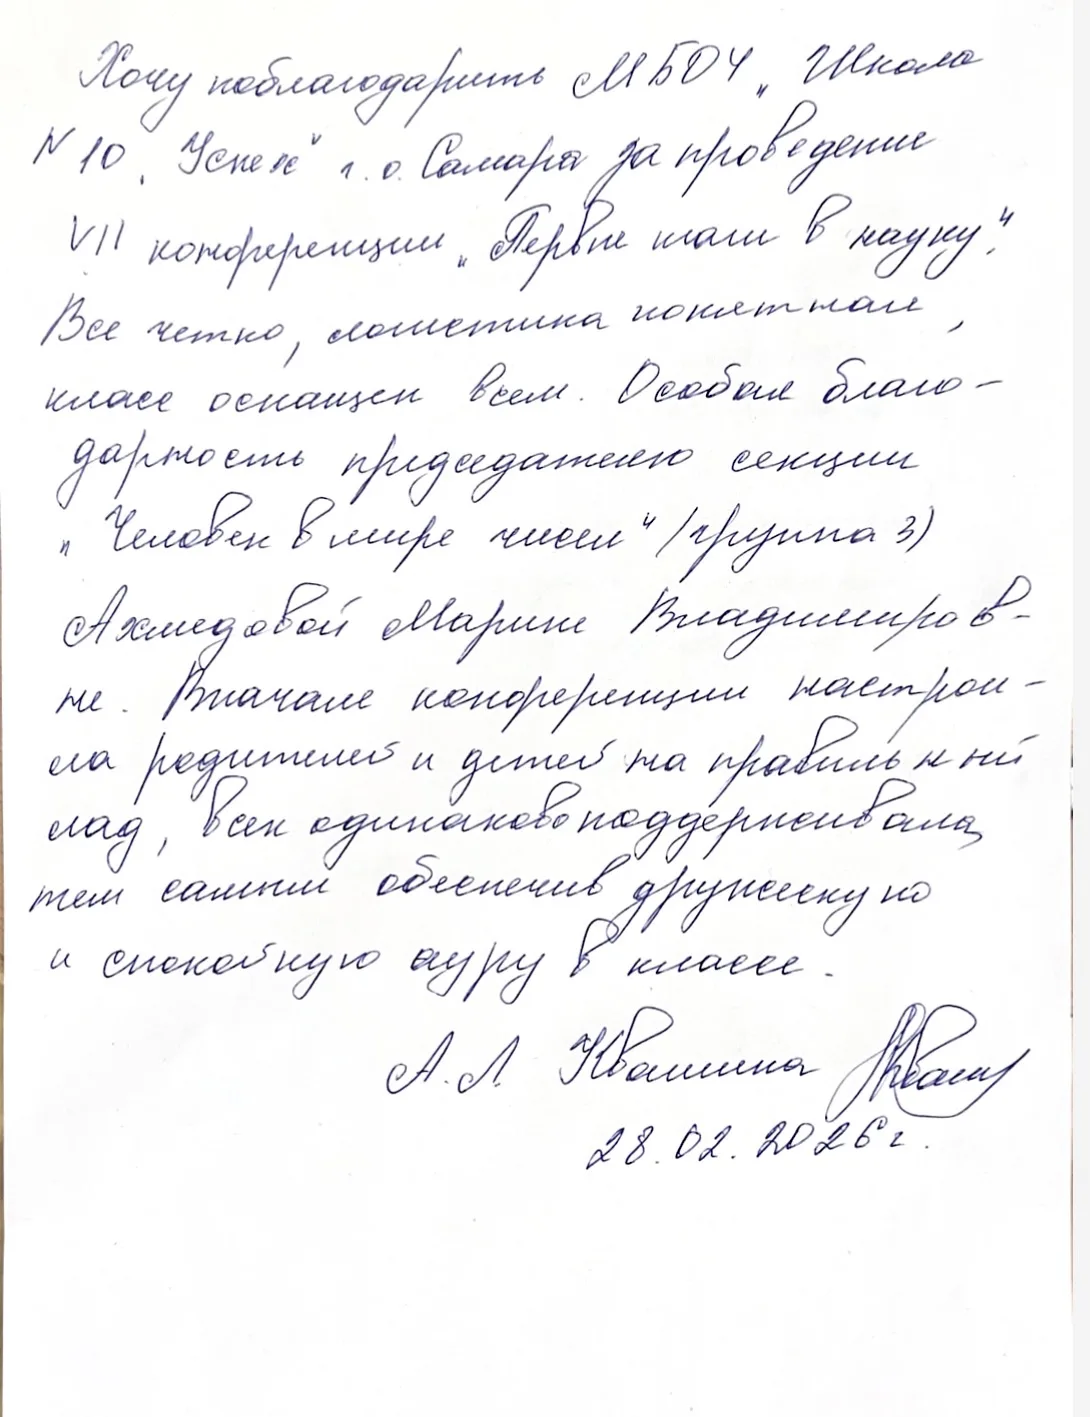 Хочу поблагодарить МБОУ „Школа
N 10 „Успех" г.о. Самара за проведение
VII конференции „Первые шаги в науку".
Все четко, логистика понятная,
класс оснащен всем. Особая благо-
дарность председателю секции
„Человек в мире чисел" (группа 3)
Ахмедовой Марине Владимиров-
не. Вначале конференции настрои-
ла родителей и детей на правильный
лад, всех одинаково поддерживала,
тем самым обеспечив дружескую
и спокойную ауру в классе.
А.Л. Квашнина
28.02.2026 г.